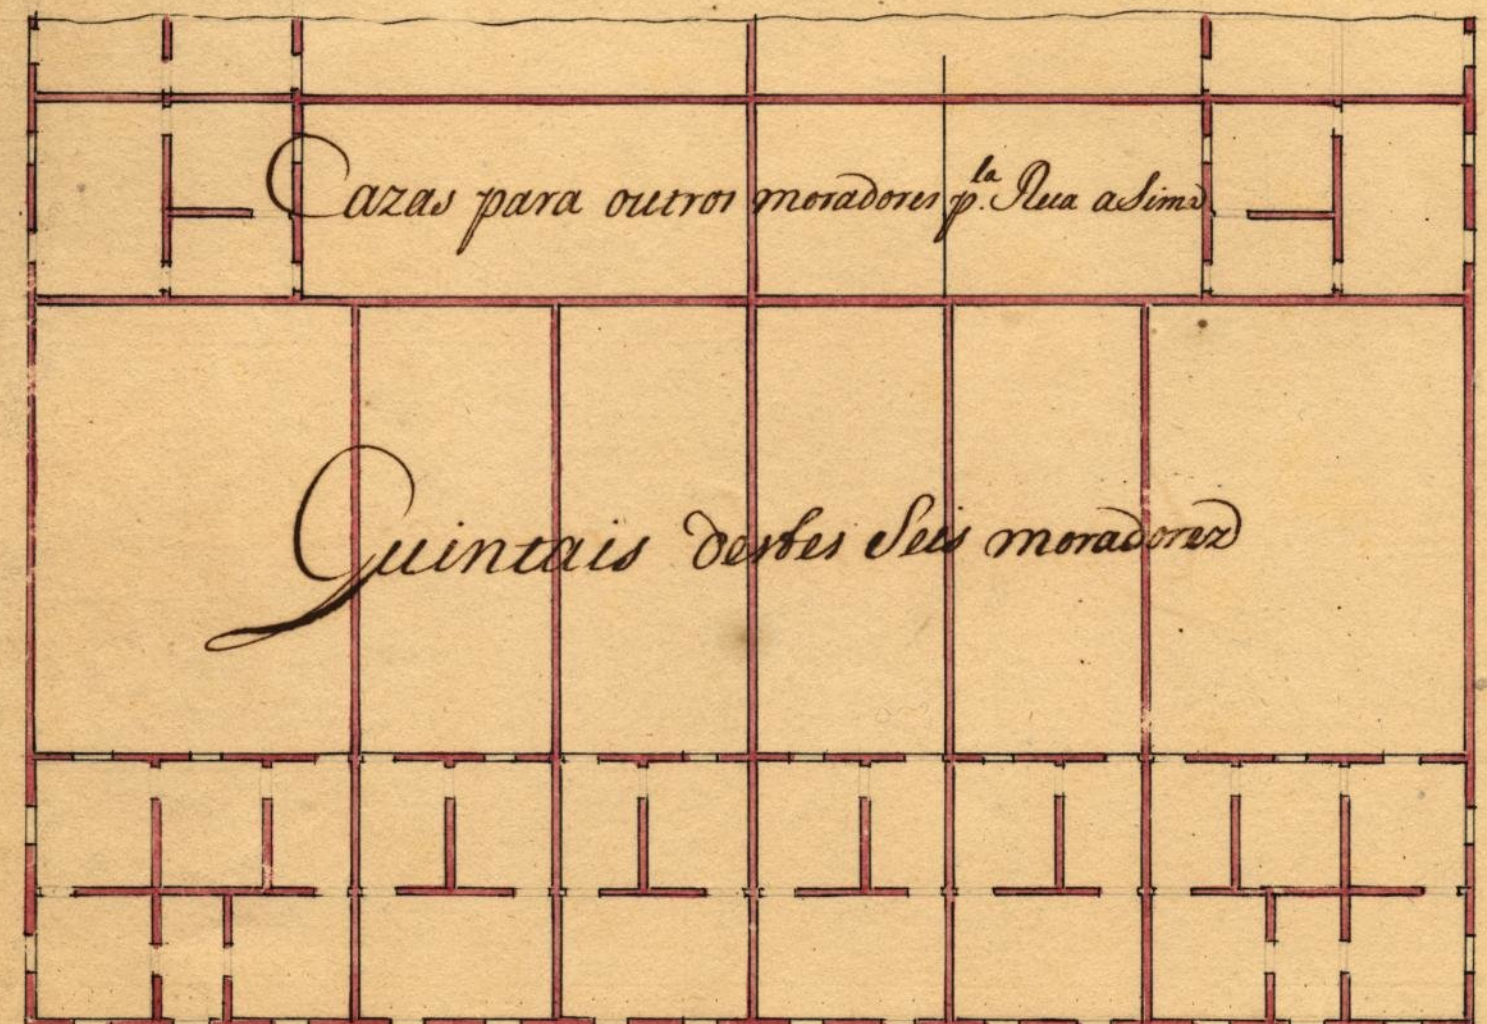 Cazas para outros moradores p.la Rua asima
Quintais destes Seis moradorez